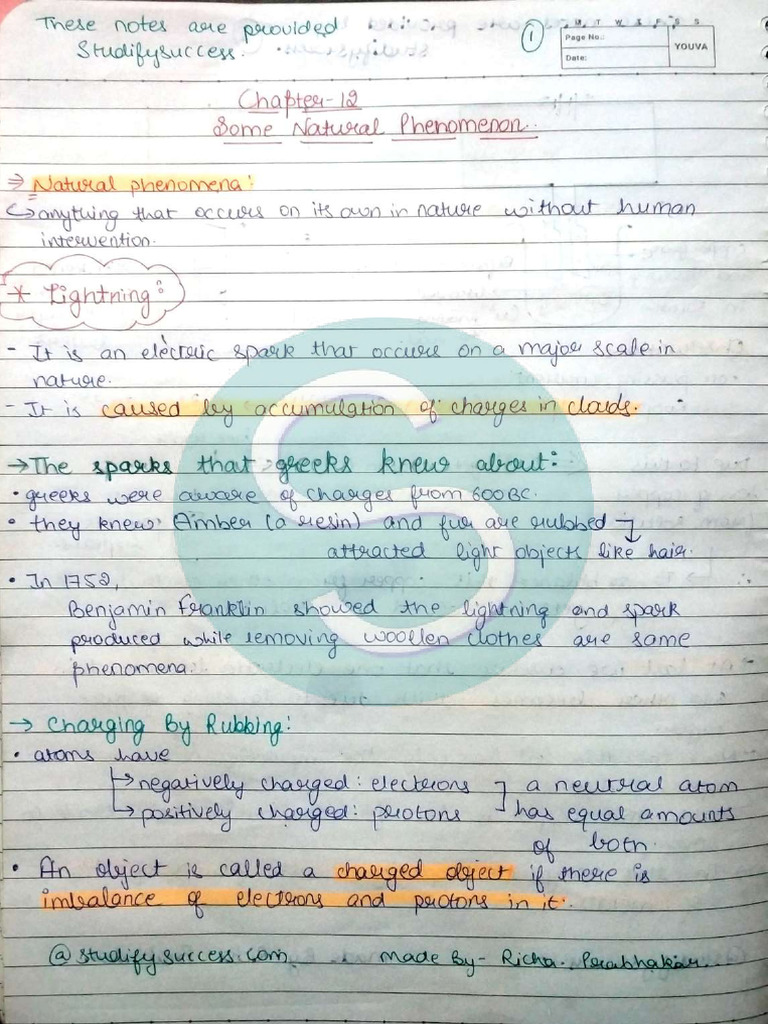 These notes are provided
Studifysuccess.
1
M T W T F S S
Page No.:
YOUVA
Date:
Chapter-12
Some Natural Phenomenon.
⇒ Natural phenomena:
↪ anything that occurs on its own in nature without human
intervention.
* Lightning:
- It is an electric spark that occurs on a major scale in
nature.
- It is caused by accumulation of charges in clouds.
→ The sparks that greeks knew about:
• greeks were aware of charges from 600BC.
• they knew Amber (a resin) and fur are rubbed
attracted light objects like hair.
• In 1752,
Benjamin Franklin showed the lightning and spark
produced while removing woollen clothes are same
phenomena.
→ Charging By Rubbing:
• atoms have
↳ negatively charged: electrons ] a neutral atom
↳ positively charged: protons has equal amounts
of both.
• An object is called a charged object if there is
imbalance of electrons and protons in it.
@studifysuccess.com made By- Richa Prabhakar
S